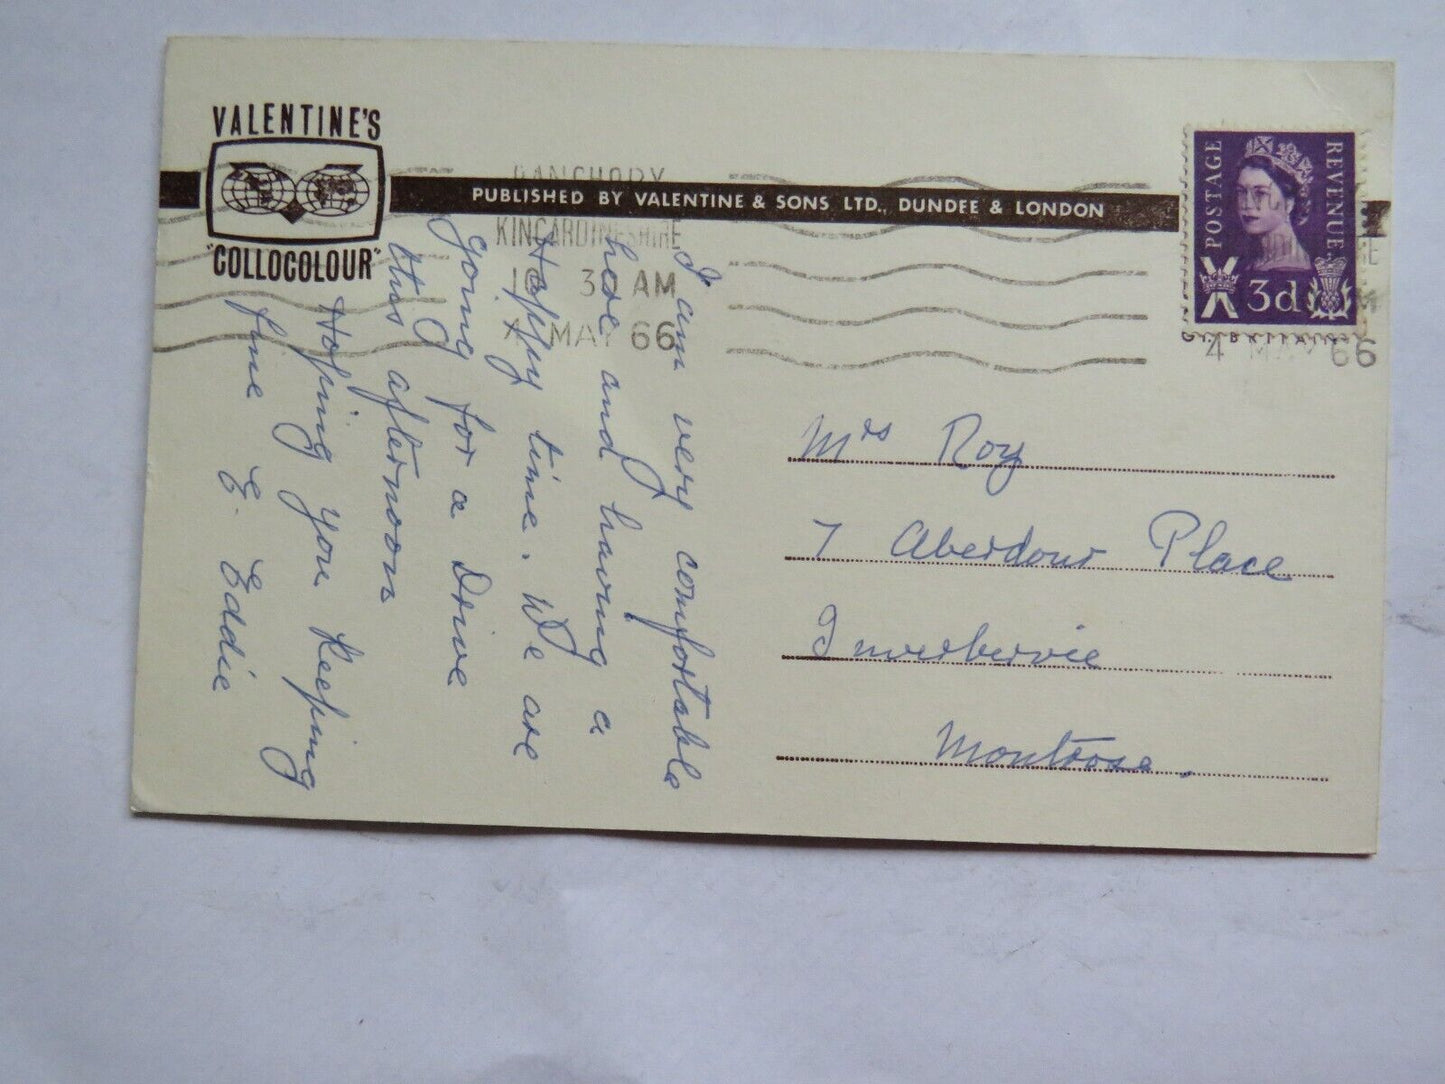 VALENTINE'S
"COLLOCOLOUR"
PUBLISHED BY VALENTINE & SONS LTD., DUNDEE & LONDON
BANCHORY
KINCARDINESHIRE
30 AM
MAY 66
POSTAGE
REVENUE
3d
4 MAY 66
I am very comfortable
here and having a
Happy time. We are
going for a Drive
this afternoon
Hoping you keeping
fine E. Eddie
Mrs Roy
7 Aberdour Place
Inverbervie
Montrose.